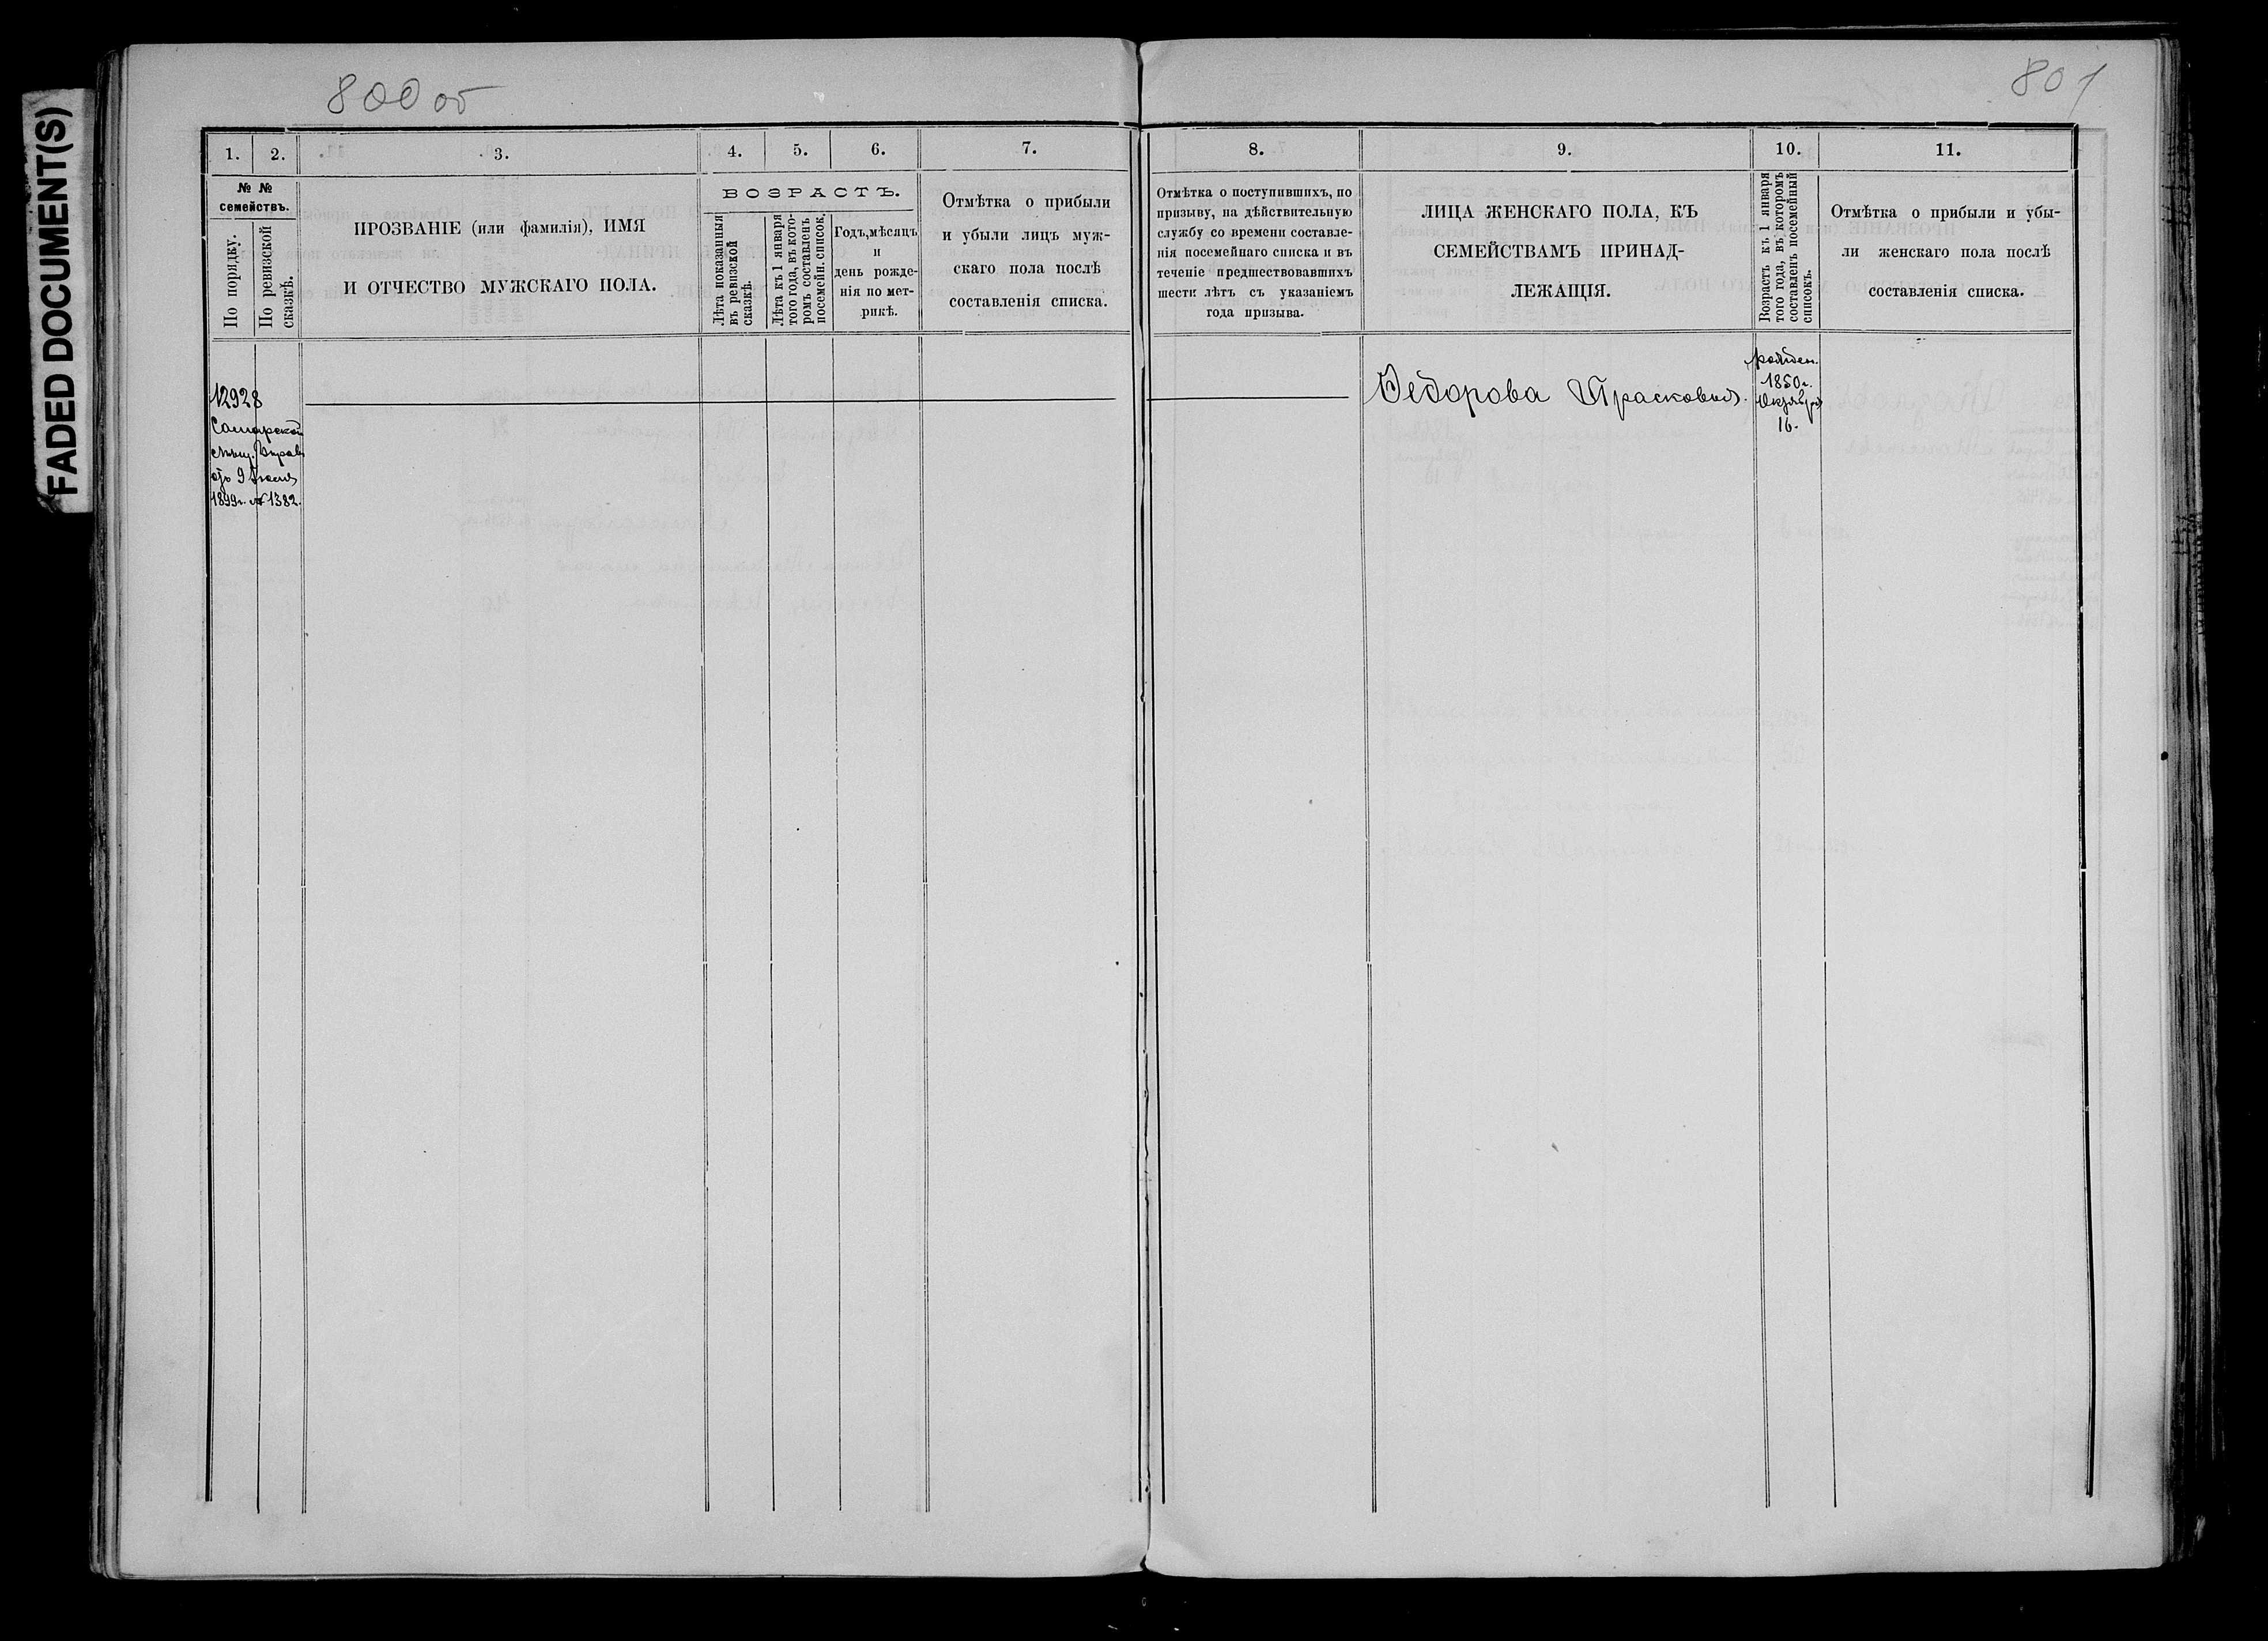 FADED DOCUMENT(S)
800 об
801
1. 2. 3. 4. 5. 6. 7. 8. 9. 10. 11.
№ №
семействъ.
По порядку.
По ревизской
сказкѣ.
ПРОЗВАНІЕ (или фамилія), ИМЯ
И ОТЧЕСТВО МУЖСКАГО ПОЛА.
ВОЗРАСТЪ.
Лѣта показанныя
въ ревизской
сказкѣ.
Лѣта къ 1 января
того года, въ кото-
ромъ составленъ
посемейн. список.
Годъ, мѣсяцъ
и
день рожде-
нія по мет-
рикѣ.
Отмѣтка о прибыли
и убыли лицъ муж-
скаго пола послѣ
составленія списка.
Отмѣтка о поступившихъ, по
призыву, на дѣйствительную
службу со времени составле-
нія посемейнаго списка и въ
теченіе предшествовавшихъ
шести лѣтъ съ указаніемъ
года призыва.
ЛИЦА ЖЕНСКАГО ПОЛА, КЪ
СЕМЕЙСТВАМЪ ПРИНАД-
ЛЕЖАЩІЯ.
Возрастъ къ 1 января
того года, въ которомъ
составленъ посемейный
списокъ.
Отмѣтка о прибыли и убы-
ли женскаго пола послѣ
составленія списка.
12928
Самарской
мѣщ. Управ
отъ 9 Июня
1899г. № 1382.
Федорова Прасковья.
рожден.
1850г.
Октября
16.